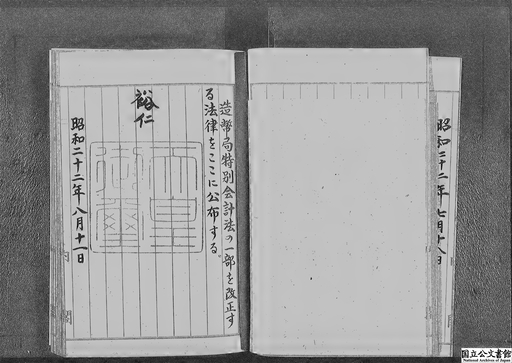 昭和二十二年七月十八日
造幣局特別会計法の一部を改正す
る法律をここに公布する。
裕仁
天皇御璽
昭和二十二年八月十一日
内閣
国立公文書館
National Archives of Japan